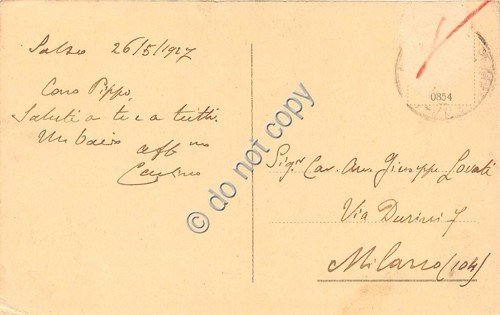 Salso 26/5/1927
Caro Pippo,
Saluti a te e a tutti.
Un bacio aff mo
0854
Sigr Cav. Giuseppe Lovati
Via Durini 7
Milano (104)
© do not copy